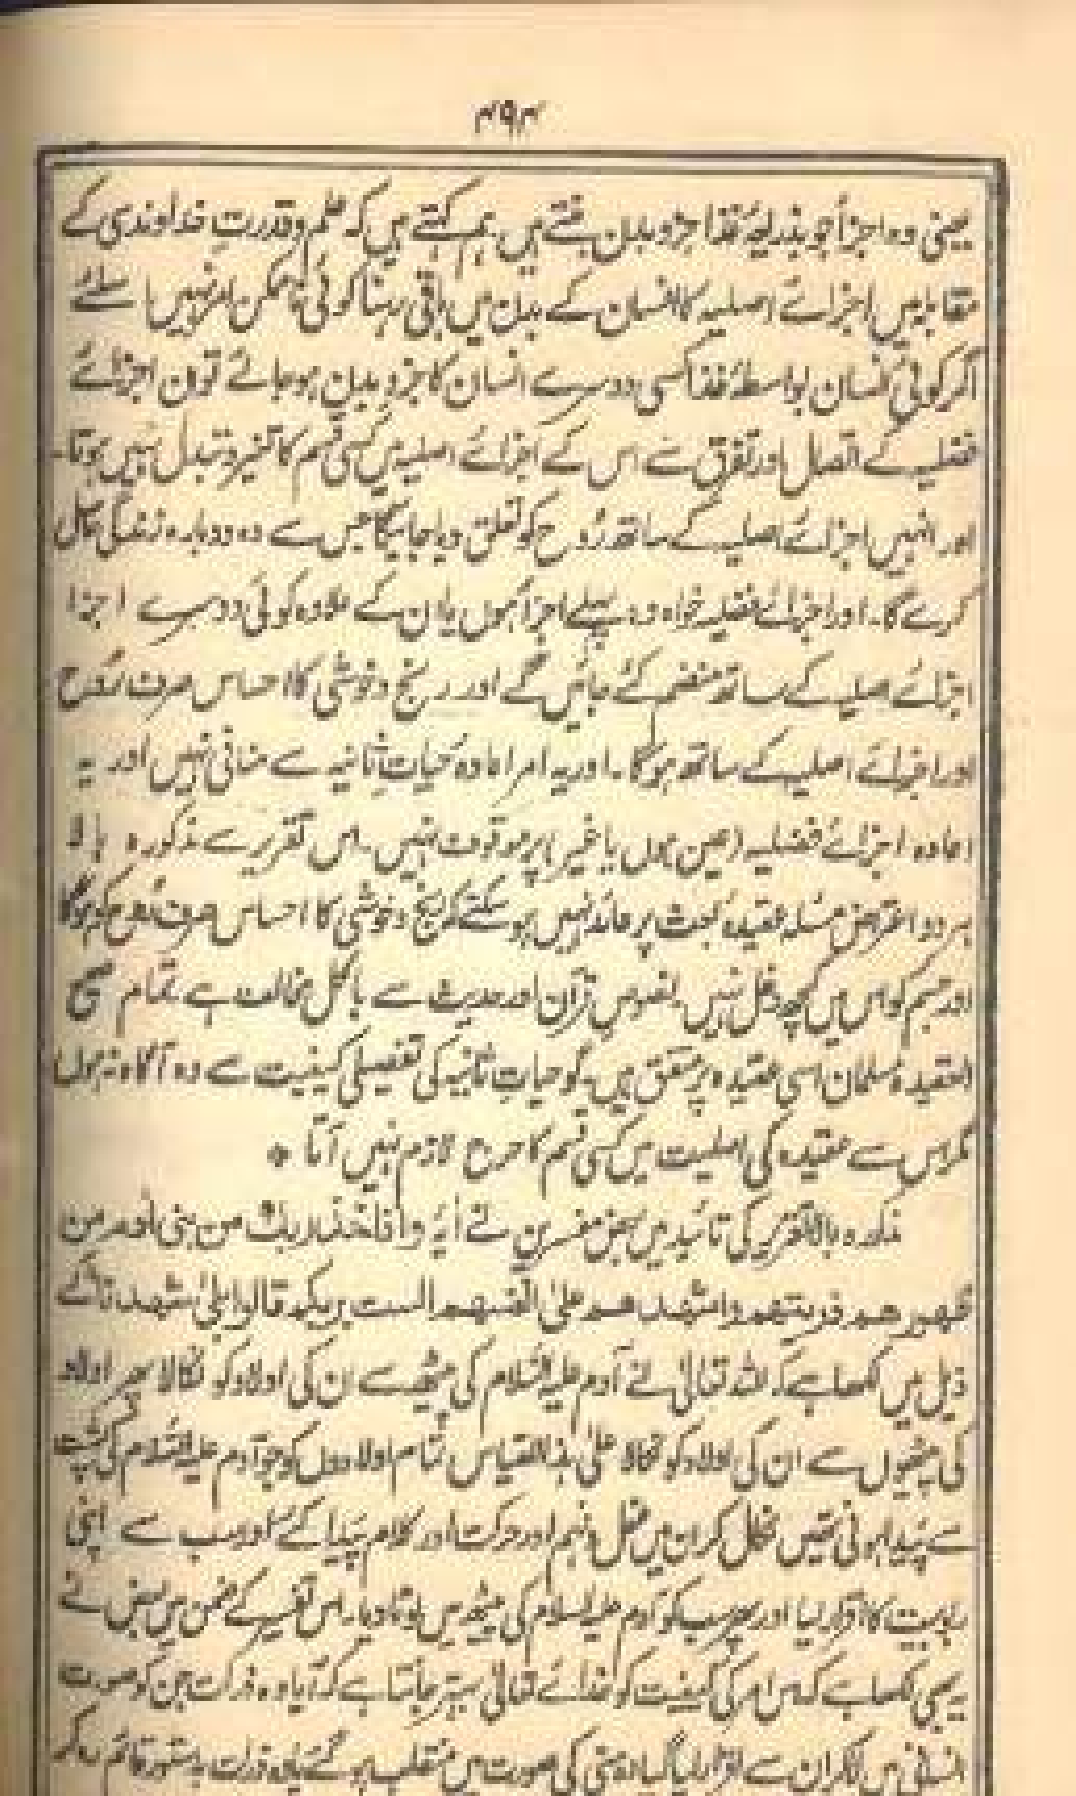 ۴۹۴
یعنی وہ اجزأ جو بذریعۂ غذا جزو بدن بنتے ہیں۔ ہم کہتے ہیں کہ علم و قدرتِ خداوندی کے
مقابلہ میں اجزائے اصلیہ کا انسان کے بدن میں باقی رہنا کوئی ناممکن امر نہیں۔ اسلئے
اگر کوئی انسان بواسطۂ غذا کسی دوسرے انسان کا جزو بدن ہو جائے تو ان اجزائے
فضلیہ کے اتصال اور تفرق سے اس کے اجزائے اصلیہ میں کسی قسم کا تغیر و تبدل نہیں ہوتا۔
اور انہیں اجزائے اصلیہ کے ساتھ رُوح کو تعلق دیا جائیگا جس سے وہ دوبارہ زندگی حاصل
کرے گا۔ اور اجزائے فضلیہ خواہ وہ پہلے اجزأ ہوں یا ان کے علاوہ کوئی دوسرے اجزا
اجزائے اصلیہ کے ساتھ منضم کئے جائیں گے اور رنج و خوشی کا احساس صرف رُوح
اور اجزائے اصلیہ کے ساتھ ہو گا۔ اور یہ امر اعادہ حیاتِ ثانیہ سے منافی نہیں اور یہ
اعادہ اجزائے فضلیہ (عین ہوں یا غیر) پر موقوف نہیں۔ اس تقریر سے مذکورہ بالا
ہر دو اعتراض مسئلہ عقیدہ بعث پر عائد نہیں ہو سکتے کہ رنج و خوشی کا احساس صرف رُوح کو ہو گا
اور جسم کو اس میں کچھ دخل نہیں۔ نصوص قرآن اور حدیث سے بالکل مخالف ہے تمام صحیح
العقیدہ مسلمان اسی عقیدہ پر متفق ہیں۔ گو حیاتِ ثانیہ کی تفصیلی کیفیت سے وہ آگاہ نہ ہوں
مگر اس سے عقیدہ کی اصلیت میں کسی قسم کا حرج لازم نہیں آتا *
مذکورہ بالا تقریر کی تائید میں بعض مفسرین نے آیہ واذ اخذ ربك من بنی ادم من
ظهورهم ذریتهم واشهدهم علیٰ انفسهم الست بربکم قالوا بلیٰ شهدنا کے
ذیل میں لکھا ہے کہ اللہ تعالیٰ نے آدم علیہ السلام کی پیٹھ سے ان کی اولاد کو نکالا پھر اولاد
کی پیٹھوں سے ان کی اولاد کو نکالا علیٰ ہذا القیاس تمام اولادوں کو جو آدم علیہ السلام کی پشت
سے پیدا ہونی تھیں نکال کر ان میں عقل و فہم اور حرکت اور کلام پیدا کئے اور سب سے اپنی
ربوبیت کا اقرار لیا اور پھر سب کو آدم علیہ السلام کی پیٹھ میں لوٹا دیا۔ اس تفسیر کے ضمن میں بعض نے
یہ بھی لکھا ہے کہ اس امر کی کیفیت کو خدائے تعالیٰ بہتر جانتا ہے کہ آیا وہ ذرات جن کو صورت
انسانی میں لا کر ان سے اقرار لیا گیا وہ مٹی کی صورت میں منقلب ہو گئے یا وہ ذرات بدستور قائم رہ کر